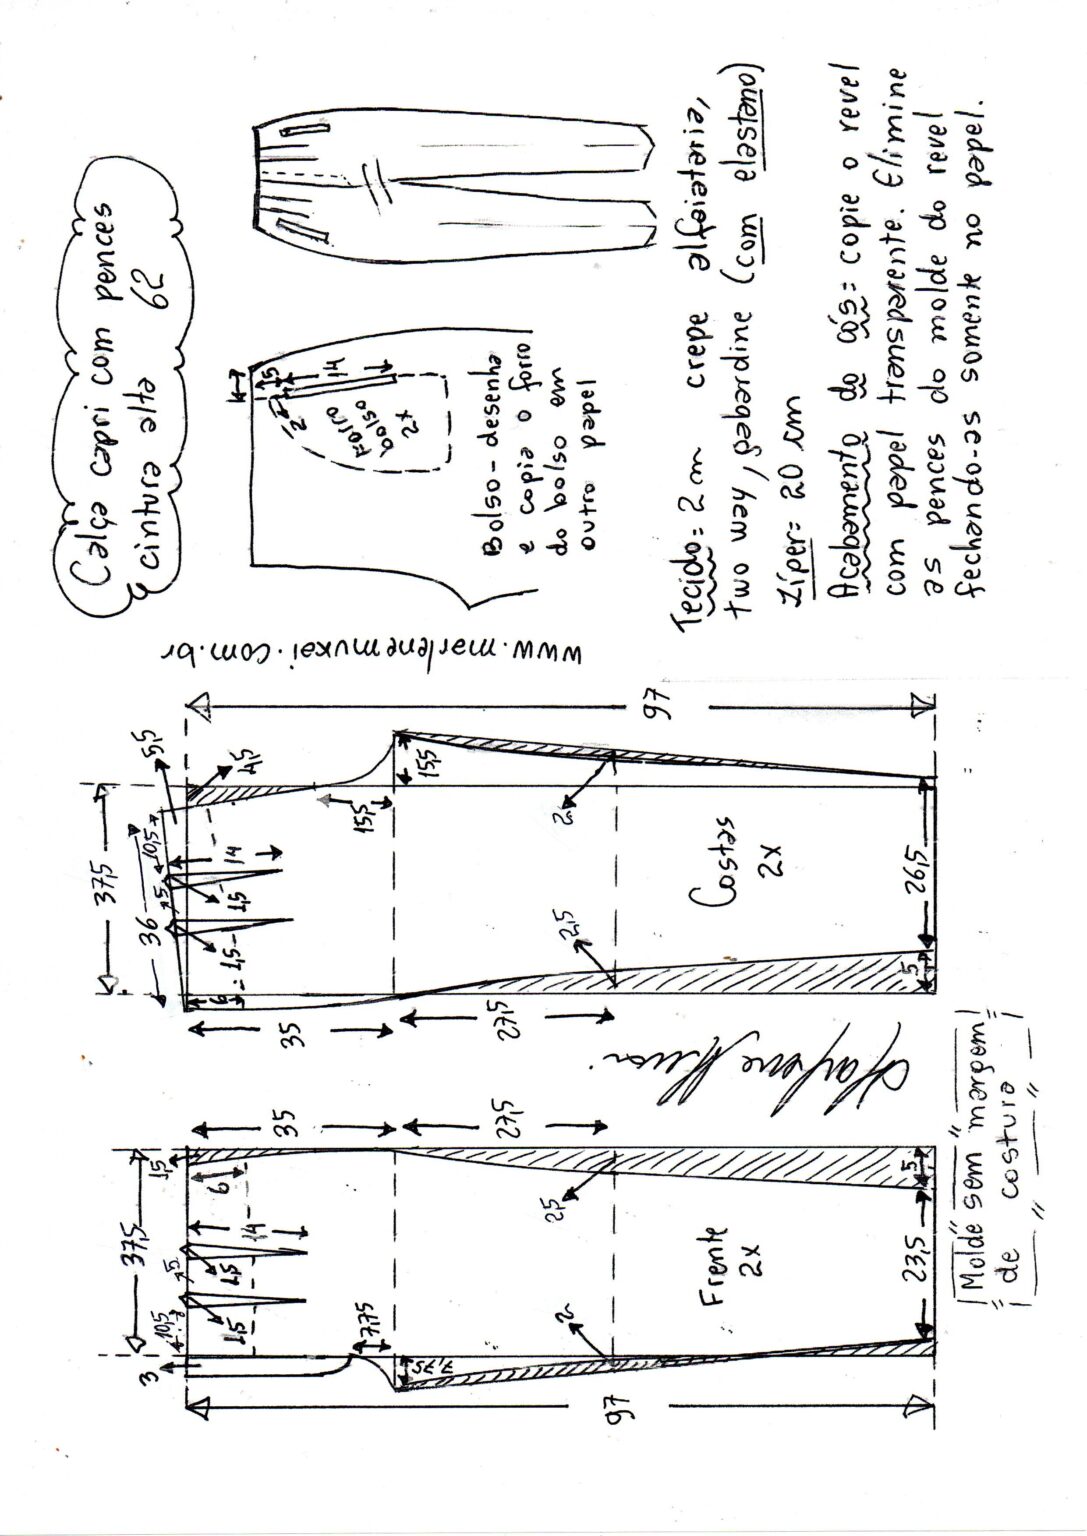 Calça capri com pences
cintura alta 62
1,5
14
2
Forro
bolso
2x
Bolso - desenha
e copia o forro
do bolso em
outro papel
www.marlenemukai.com.br
Tecido = 2 m crepe alfaiataria,
two way, gabardine (com elastano)
Zíper = 20 cm
Acabamento do cós = copie o revel
com papel transparente. Elimine
as pences do molde do revel
fechando-as somente no papel.
97
3
37,5
10,5
5
1,5
1,5
1,5
14
6
7,75
7,75
35
27,5
2
2,5
Frente
2x
23,5
5
37,5
36
10,5
5
5,5
4,5
1,5
1,5
14
6
15,5
15,5
35
27,5
2
2,5
Costas
2x
26,5
5
97
Molde sem margem
de costura